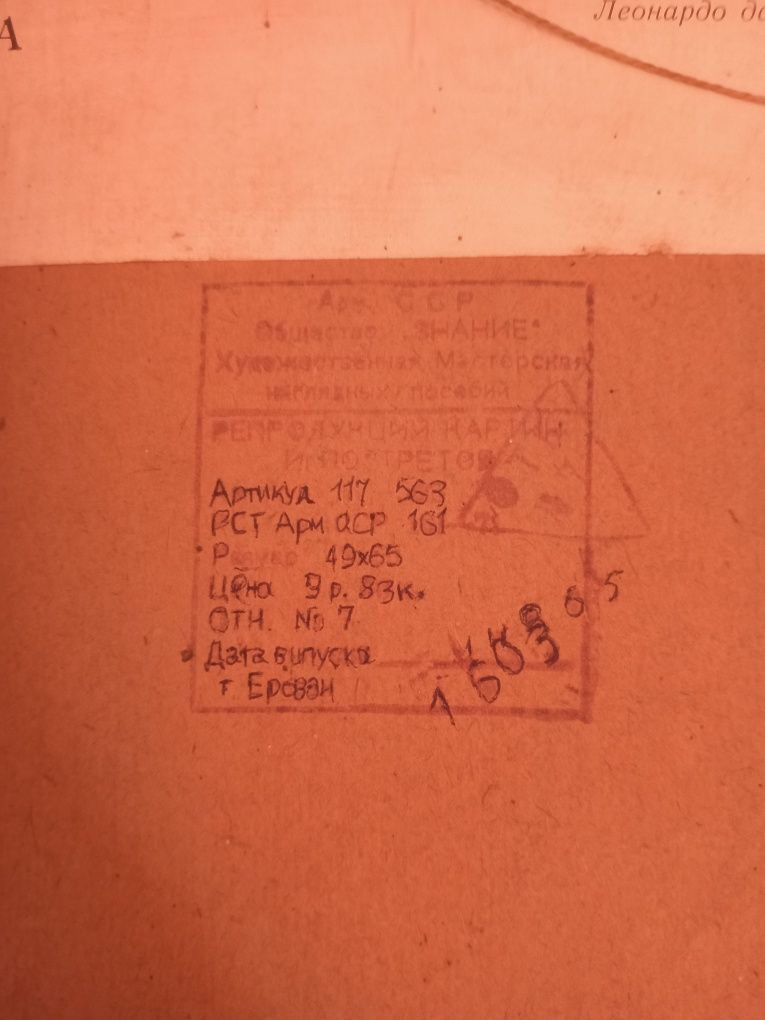 А
Леонардо да
Арм. ССР
Общество „ЗНАНИЕ“
Художественная Мастерская
наглядных пособий
РЕПРОДУКЦИЙ КАРТИН
И ПОРТРЕТОВ
Артикул 117 563
РСТ Арм ССР 161
Размер 49х65
Цена 9 р. 83к.
ОТН. № 7
Дата випуска
г. Ереван